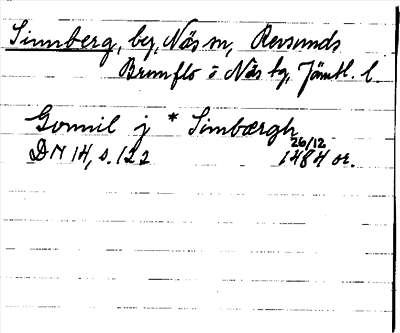 Sinnberg, by, Näs sn, Revsunds
Brunflo o Näs tg, Jämtl. l.
Gonnil j * Simbærgh
26/12
DN 14, s. 122 1484 or.